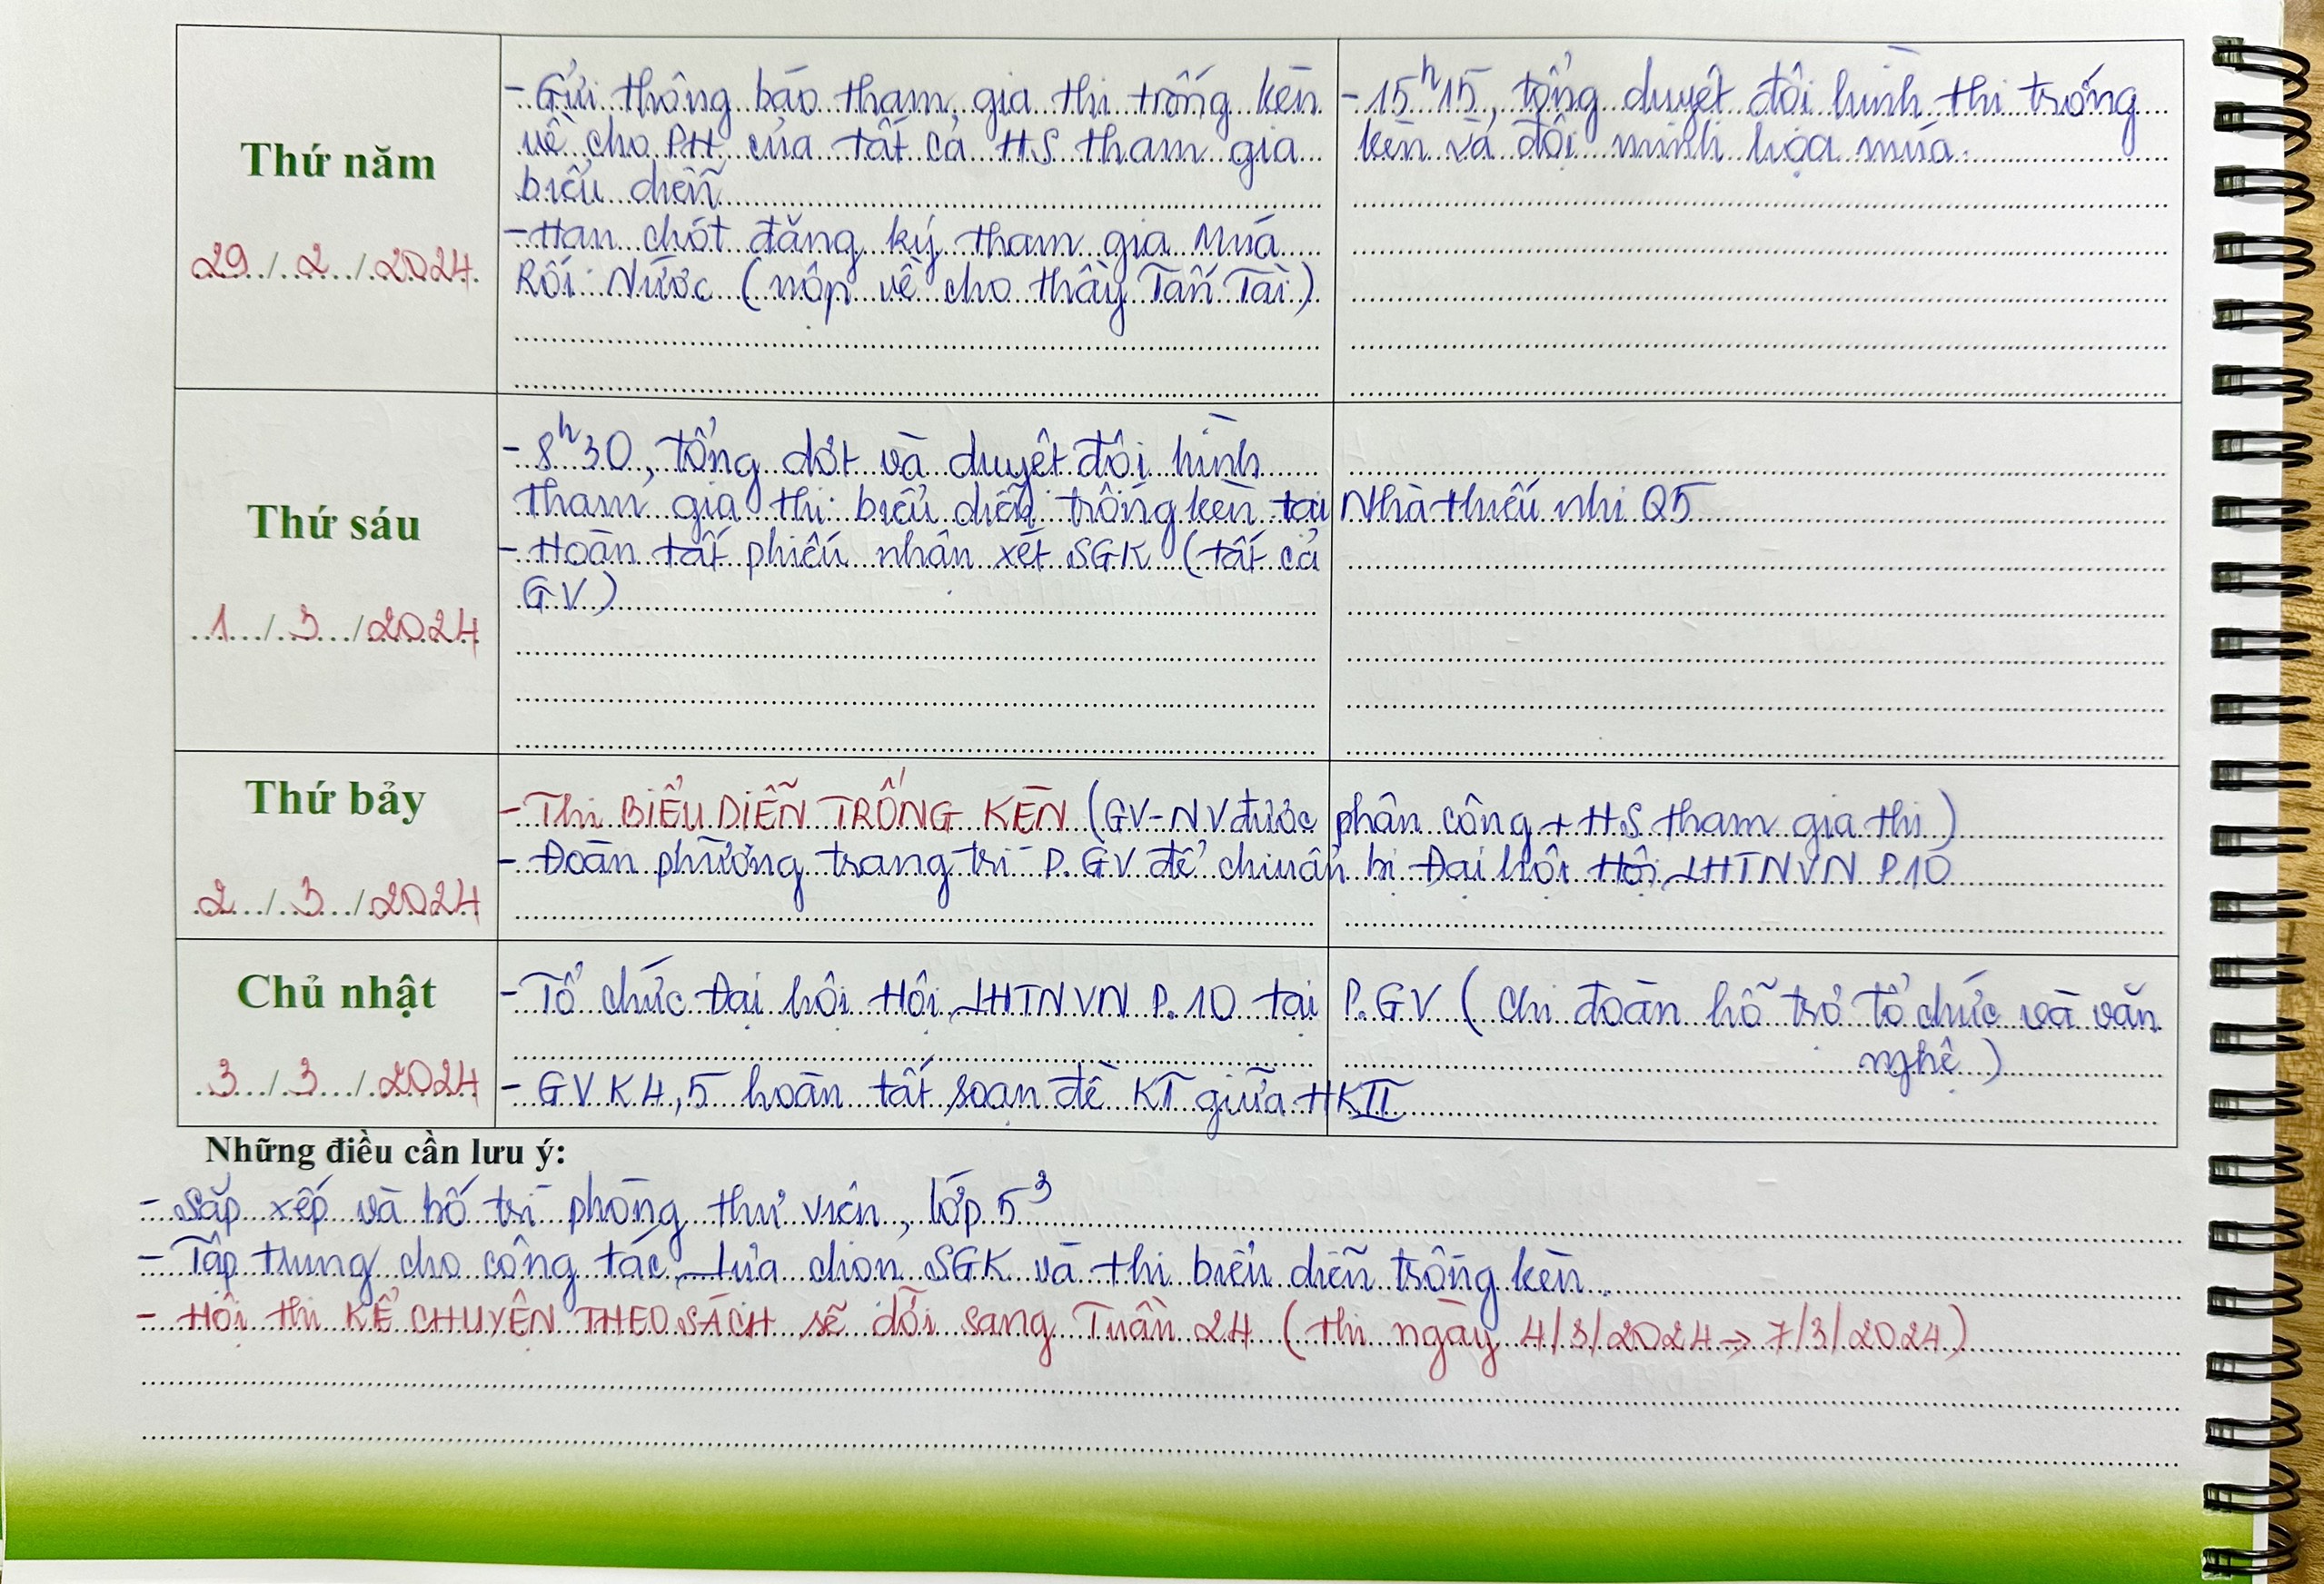 Thứ năm
29/2/2024
- Gửi thông báo tham gia thi trống kèn
về cho PH của tất cả HS tham gia
biểu diễn
- Hạn chót đăng ký tham gia Múa
Rối Nước (nộp về cho thầy Tấn Tài)
- 15h15, tổng duyệt đội hình thi trống
kèn và đội minh họa múa.
Thứ sáu
1/3/2024
- 8h30, tổng dợt và duyệt đội hình
tham gia thi biểu diễn trống kèn tại Nhà thiếu nhi Q5
- Hoàn tất phiếu nhận xét SGK (tất cả
GV)
Thứ bảy
2/3/2024
- Thi BIỂU DIỄN TRỐNG KÈN (GV-NV được phân công + HS tham gia thi)
- Đoàn phường trang trí P.GV để chuẩn bị Đại hội Hội LHTNVN P.10
Chủ nhật
3/3/2024
- Tổ chức Đại hội Hội LHTNVN P.10 tại P.GV (Chi đoàn hỗ trợ tổ chức và văn
nghệ)
- GV K4,5 hoàn tất soạn đề KT giữa HKII
Những điều cần lưu ý:
- Sắp xếp và bố trí phòng thư viện, lớp 5³
- Tập trung cho công tác Lựa chọn SGK và thi biểu diễn trống kèn.
- Hội thi KỂ CHUYỆN THEO SÁCH sẽ dời sang Tuần 24 (thi ngày 4/3/2024 → 7/3/2024)